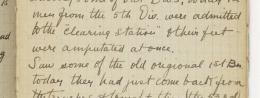 men from the 5th Div. were admitted
to the "clearing station" & their feet
were amputated at once.
Saw some of the old origional 1st Bn
today they had just come back from